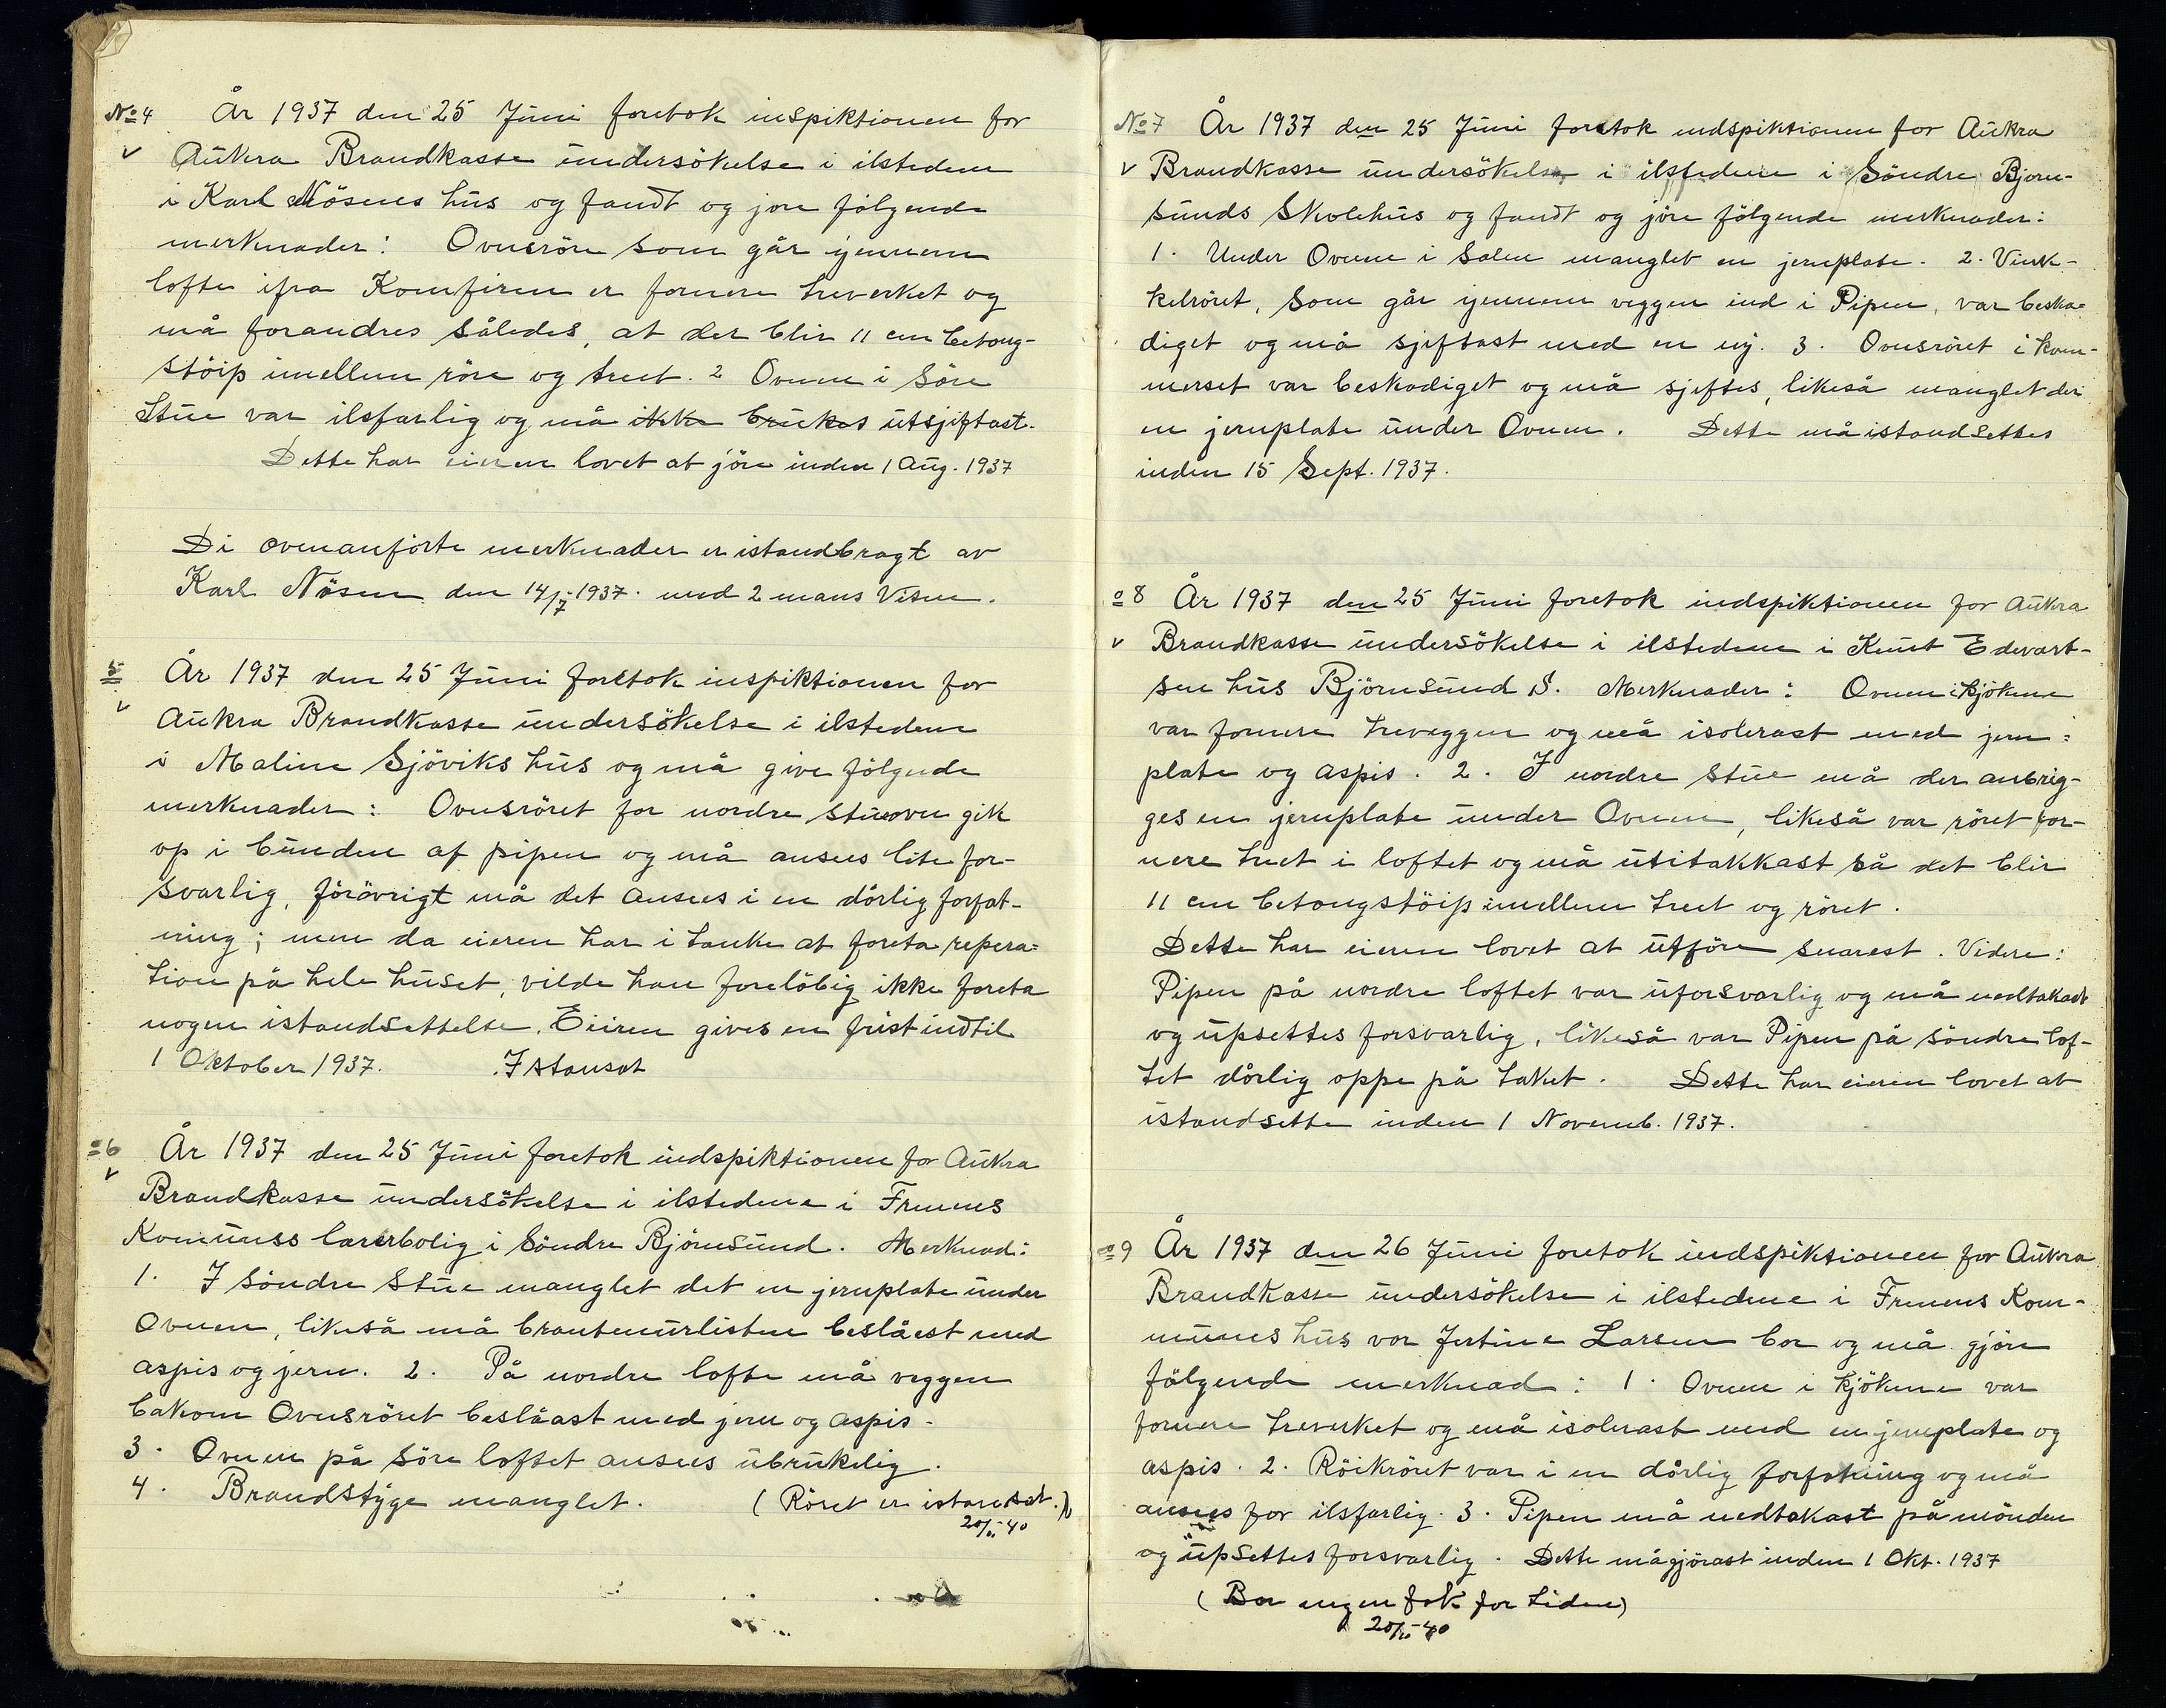 No 4 År 1937 den 25 Juni foretok inspiktionen for
v Aukra Brandkasse undersökelse i ilstedene
i Karl Nösnes hus og fandt og jöre fölgende
merknader: Ovnsröre som går jennem
lofte ifra Komfiren er fornere treverket og
må forandres således, at der blir 11 cm betong-
stöip imellem röre og treet. 2 Ovnen i Söre
Stue var ilsfarlig og må ikke brukes utsjiftast.
Dette har eieren lovet at jöre inden 1 Aug. 1937
Di ovenanförte merknader er istandbragt av
Karl Nösen den 14/7-1937. med 2 mans Visne.
5 År 1937 den 25 Juni foretok inspiktionen for
v Aukra Brandkasse undersökelse i ilstedene
i Maline Sjöviks hus og må give fölgende
merknader: Ovnsröret for nordre stueovn gik
op i bunden af pipen og må ansees lite for-
svarlig, förövrigt må det ansees i en dårlig forfat-
ning; men da eieren har i tanke at foreta repera-
tion på hele huset, vilde han forelöbig ikke foreta
nogen istandsettelse. Eieren gives en frist indtil
1 Oktober 1937. Istansat
o 6 År 1937 den 25 Juni foretok indspiktionen for Aukra
v Brandkasse undersökelse i ilstedene i Frenens
Komunss lærerbolig i Söndre Björnsund. Merknad:
1. I söndre stue manglet det en jernplate under
Ovnen, likeså må brantmurlisten beslåest med
aspis og jern. 2. På nordre lofte må veggen
bakom Ovnsröret beslåast med jern og aspis.
3. Ovnen på söre loftet ansees ubrukelig.
4. Brandstyge manglet. (Röret er istansat.)
20/11-40
No 7 År 1937 den 25 Juni foretok indspiktionen for Aukra
v Brandkasse undersökelse i ilstedene i Söndre Bjorn-
sunds Skolehus og fandt og jöre fölgende merknader:
1. Under Ovnen i Salen manglet en jernplate. 2. Vink-
kelröret, som går jennem veggen ind i Pipen, var beska-
diget og må sjiftast med en ny. 3. Ovnsröret i kam-
merset var beskadiget og må sjiftes, likeså manglet der
en jernplate under Ovnen. Dette må istandsettes
inden 15 Sept. 1937.
o 8 År 1937 den 25 Juni foretok indspiktionen for Aukra
v Brandkasse undersökelse i ilstedene i Knut Edvart-
sen hus Björnsund S. Merknader: Ovnen i kjökene
var fornere treveggen og må isolerast med jern-
plate og aspis. 2. I nordre stue må der anbrig-
ges en jernplate under Ovnen, likeså var röret for-
nere treet i loftet og må utitakkast så det blir
11 cm betongstöip imellem treet og röret.
Dette har eieren lovet at utföre snarest. Videre:
Pipen på nordre loftet var uforsvarlig og må nedtakast
og upsettes forsvarlig, likeså var Pipen på söndre lof-
tet dårlig oppe på taket. Dette har eieren lovet at
istandsette inden 1 Novemb. 1937.
o 9 År 1937 den 26 Juni foretok indspiktionen for Aukra
Brandkasse undersökelse i ilstedene i Frenens Kom-
munes hus vor Jertine Larsen bor og må gjöre
fölgende merknad: 1. Ovnen i kjökene var
fornere treverket og må isolerast med en jernplate og
aspis. 2. Röikröret var i en dårlig forfatning og må
ansees for ilsfarlig. 3. Pipen må nedtakast på mönden
og upsettes forsvarlig. Dette må gjörast inden 1 Okt. 1937
(Bor ingen folk for tiden)
20/11-40